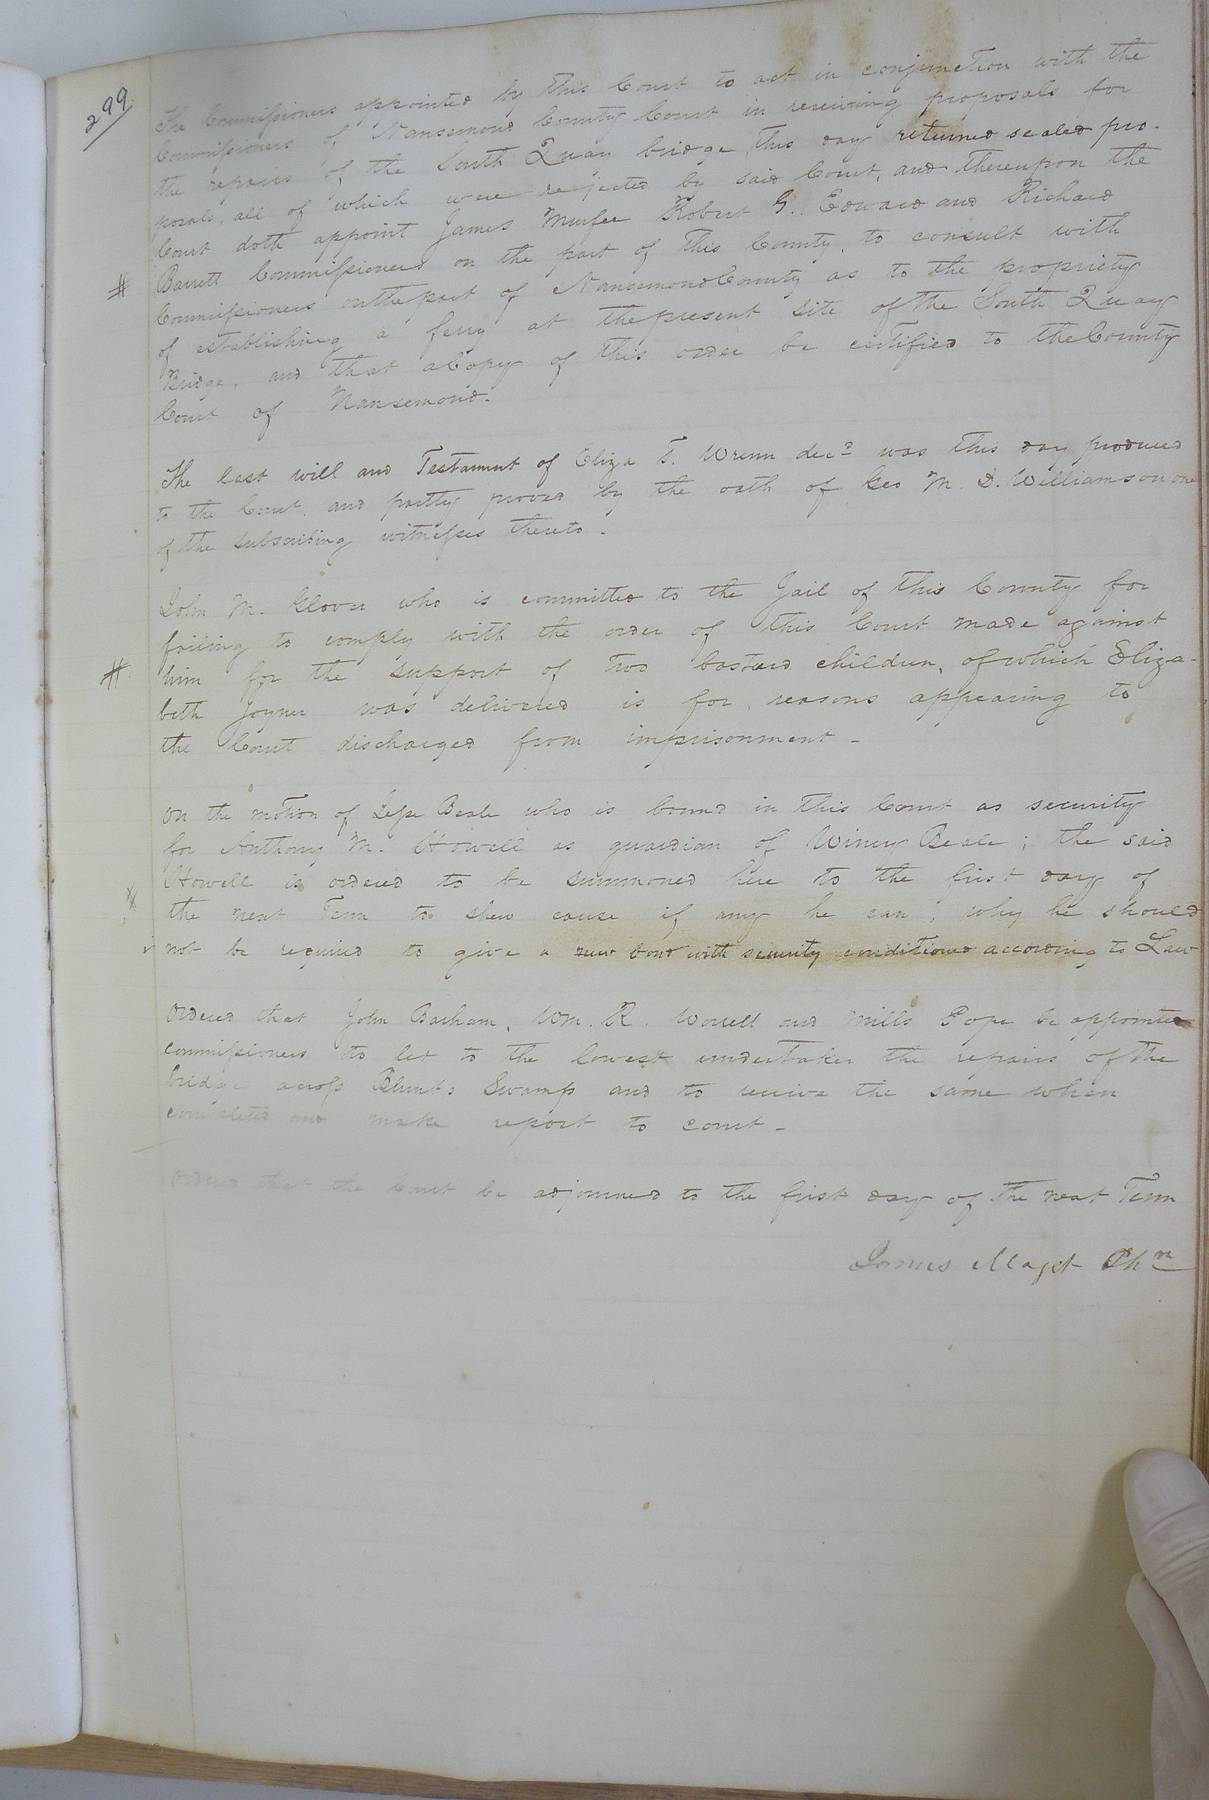 299
The Commissioners appointed by this Court to act in conjunction with the
Commissioners of Nansemond County Court in receiving proposals for
the repairs of the South Quay bridge, this day returned sealed pro-
posals, all of which were rejected by said Court, and thereupon the
Court doth appoint James Murfee Robert G. Edward and Richard
# Barrett Commissioners on the part of this County, to consult with
Commissioners on the part of Nansemond County as to the propriety
of establishing a ferry at the present site of the South Quay
Bridge, and that a Copy of this order be certified to the County
Court of Nansemond.
The last will and Testament of Eliza T. Wrenn decd was this day produced
to the Court, and partly proved by the oath of Geo M. D. Williamson one
of the subscribing witnesses thereto.
John M. Glover who is committed to the Jail of this County for
failing to comply with the order of this Court made against
# him for the support of two bastard children, of which Eliza-
beth Joyner was delivered is for reasons appearing to
the Court discharged from imprisonment -
On the motion of Jesse Beale who is bound in this Court as security
for Anthony M. Howell as guardian of Winny Beale; the said
Howell is ordered to be summoned here to the first day of
the next Term to shew cause if any he can, why he should
not be required to give a new bond with security conditioned according to Law
Ordered that John Barham, Wm. R. Worrell and Mills Pope be appointed
commissioners to let to the lowest undertaker the repairs of the
bridge across Blunts Swamp and to receive the same when
completed and make report to court -
Ordered that the Court be adjourned to the first day of the next Term
James Maget Chn